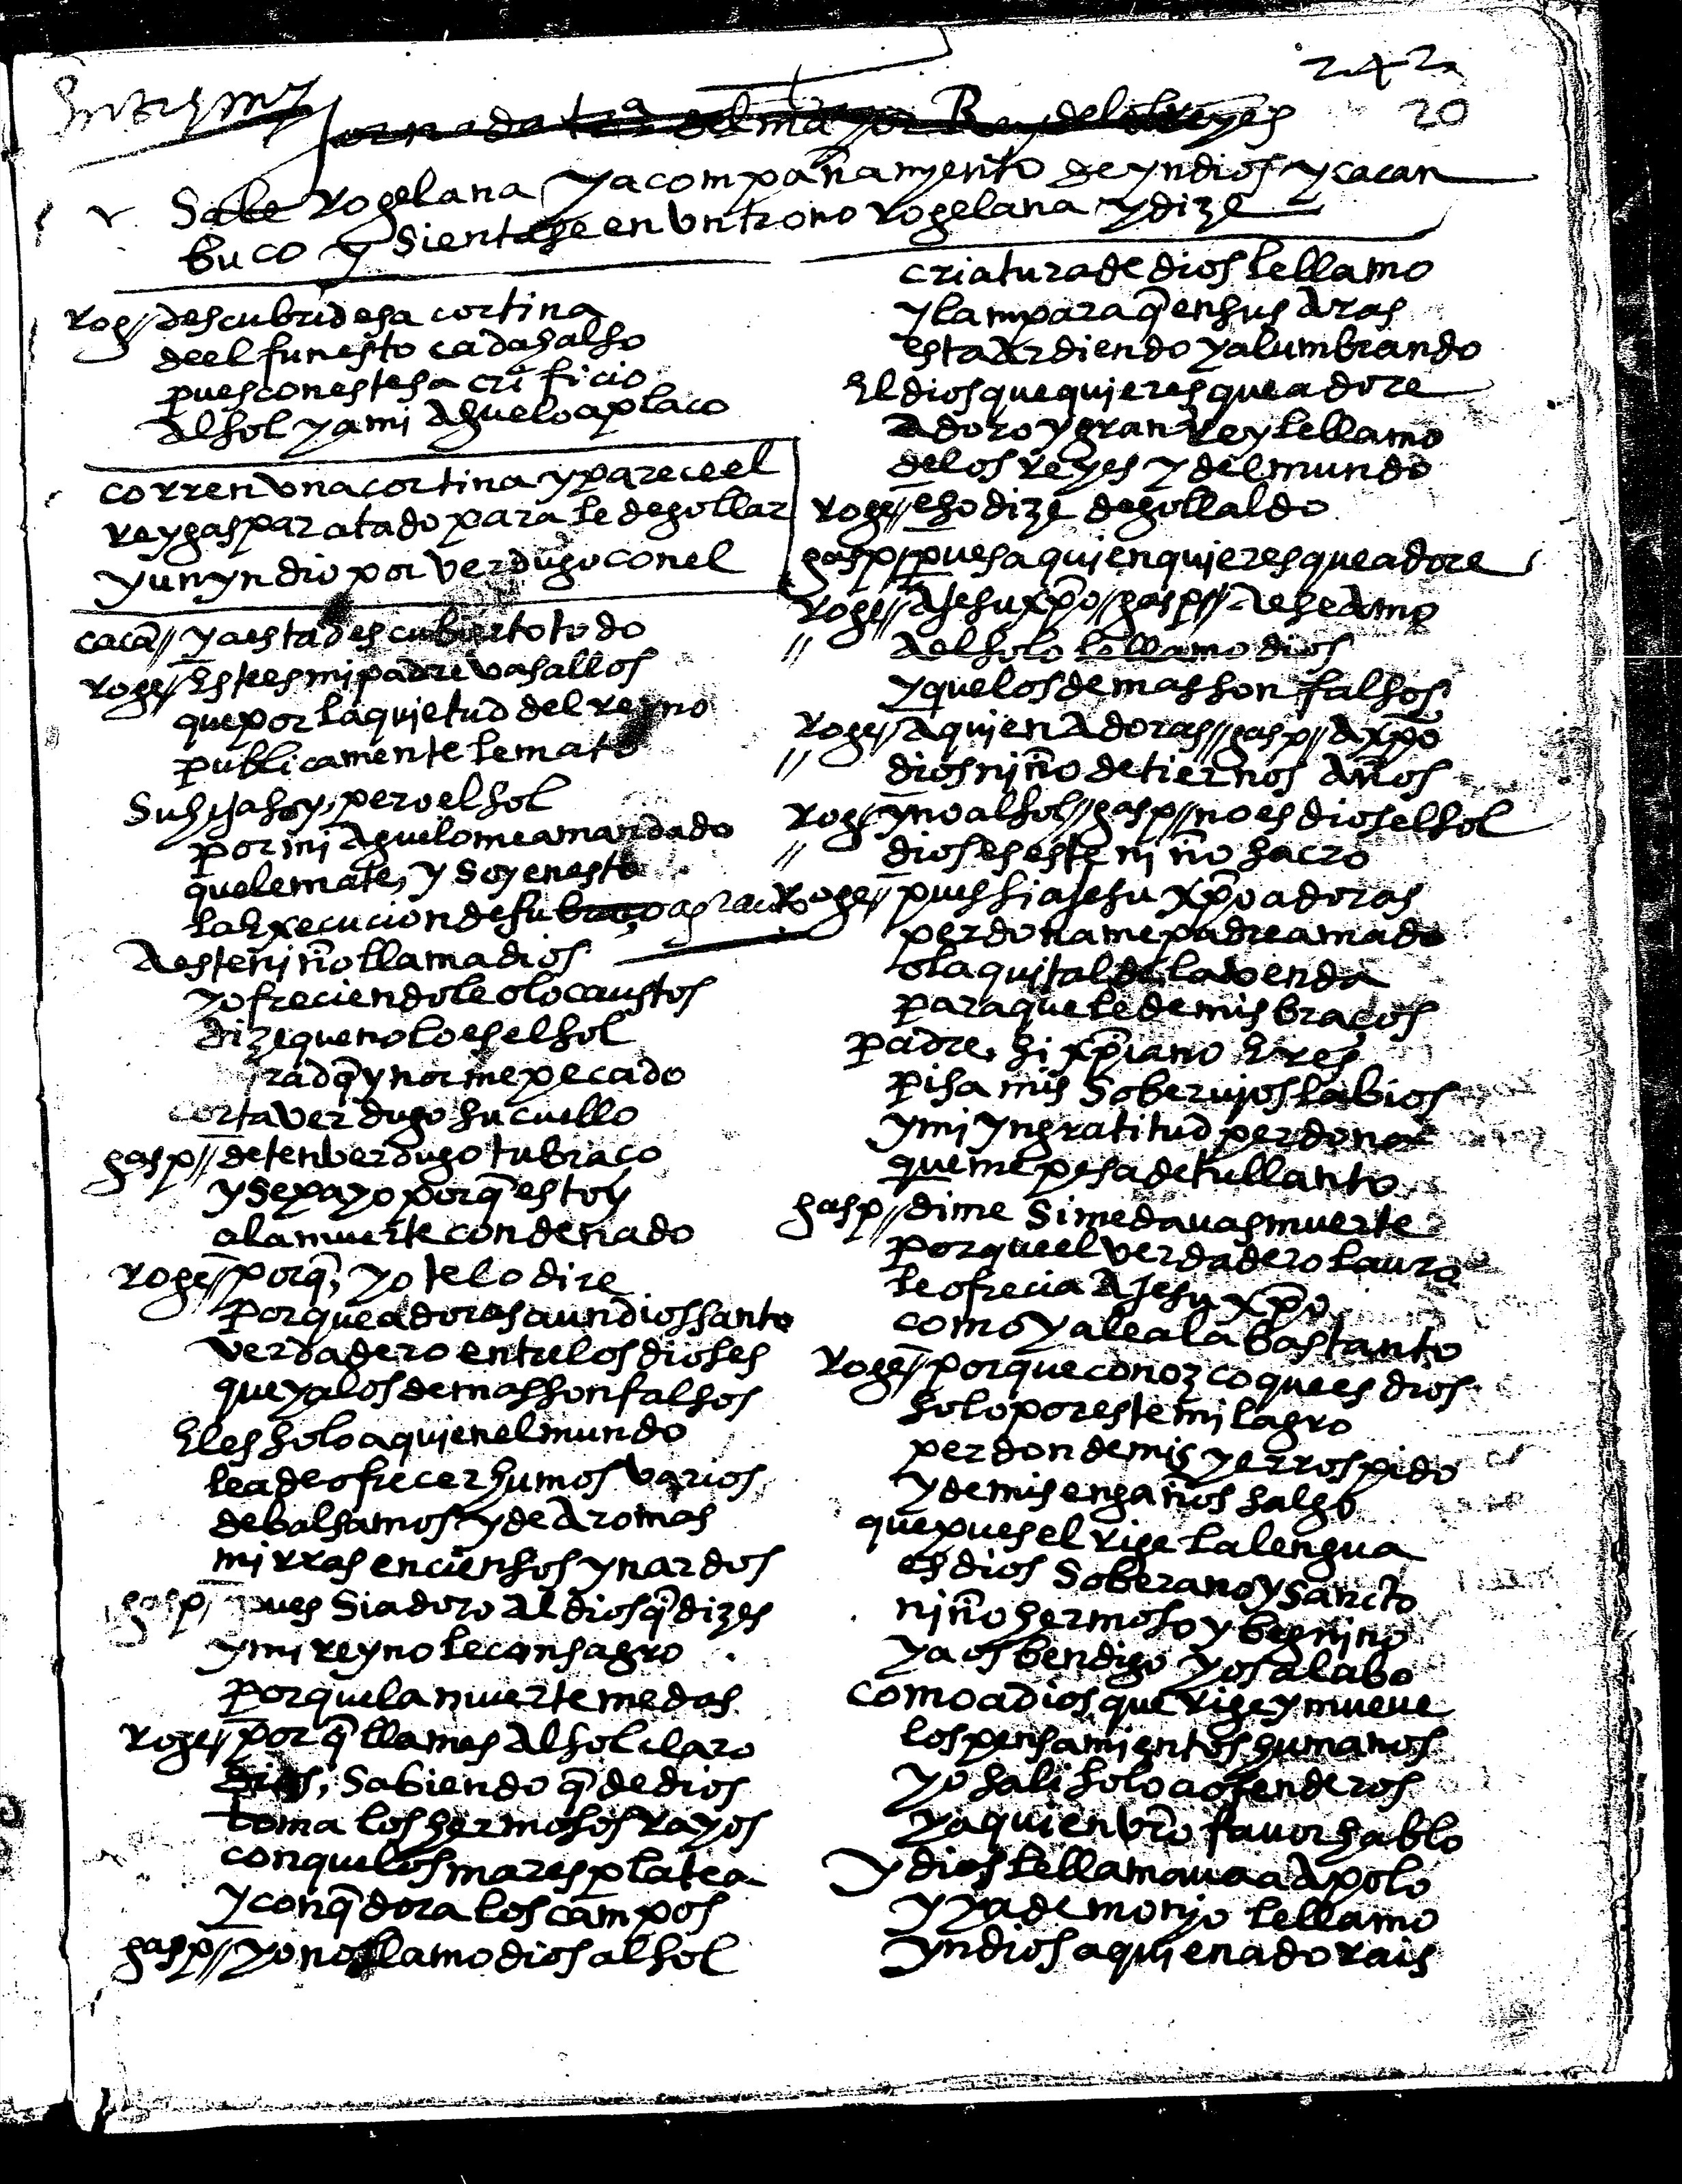 242
20
Jornada tr.a del mayor Rey de los reyes
Sale rogelana y acompañamyento de yndios y cacan
buco y sientase en vn trono rogelana y dize
rog// descubrid esa cortina
deel funesto cadahalso
pues con este sacrificio
al sol y a mi aguelo aplaco
corren vna cortina y parece el
rey gaspar atado para le degollar
y un yndio por verdugo con el
cacã// ya esta descubierto todo
roge// Este es mi padre vasallos
que por la quietud del reyno
publicamente le mato
Su hija soy, pero el sol
por mi aguelo me a mandado
que le mate, y soy en esto
la Execucion de su braço agrauio
A este niño llama dios
y ofreciendole olocaustos
dize que no lo es el sol
rad q̃ ynorme pecado
corta verdugo su cuello
gasp// deten berdugo tu braco
y sepa yo porq̃ estoy
a la muerte condenado
roge// porq̃, yo te lo dire
porque adoras a un dios santo
verdadero entre los dioses
que ya los demas son falsos
El es solo a quien el mundo
le a de ofrecer humos varios
de balsamos y de Aromas
mirras encienços y nardos
gasp// pues Si adoro al dios q̃ dizes
y mi reyno le consagro
porque la muerte me das
Roge// por q̃ llames Al sol claro
dios, Sabiendo q̃ de dios
toma los hermosos rayos
con que los mares platea
y con q̃ dora los campos
gasp// yo no llamo dios al sol
criatura de dios le llamo
y lampara q̃ en sus Aras
esta Ardiendo y alumbrando
El dios que quieres que adore
Adoro y gran Rey le llamo
de los reyes y del mundo
Roge// eso dize degollaldo
gasp// pues a quien quieres que adore
Roge// A jesu xp̃o // gasp// A ese Amo
// A el solo le llamo dios
y que los demas son falsos
Roge// A quien Adoras // gasp// A xp̃o
// dios niño de tiernos Años
Rog// y no al sol // gasp// no es dios el sol
// dios es este niño sacro
Roge// pues si a jesu xp̃o adoras
perdoname padre amado
ola quitalde la venda
para que le de mis bracos
padre, si xp̃iano Eres
pisa mis Soberuios labios
y mi yngratitud perdona
que me pesa de tu llanto
gasp// dime Si me dauas muerte
porque el verdadero lauro
le ofrecia A Jesu xp̃o
como ya le alabas tanto
Roge// porque conozco que es dios
solo por este milagro
perdon de mis yerros pido
y de mis engaños salgo
que pues el rige la lengua
es dios Soberano y sancto
niño hermoso y begnino
ya os bendigo y os alabo
como a dios que rige y mueue
los pensamientos humanos
yo sali solo a ofenderos
y aqui en vr̃o fauor hablo
y dios le llamaua a Apolo
y ya demonjo le llamo
yndios a quien adorais